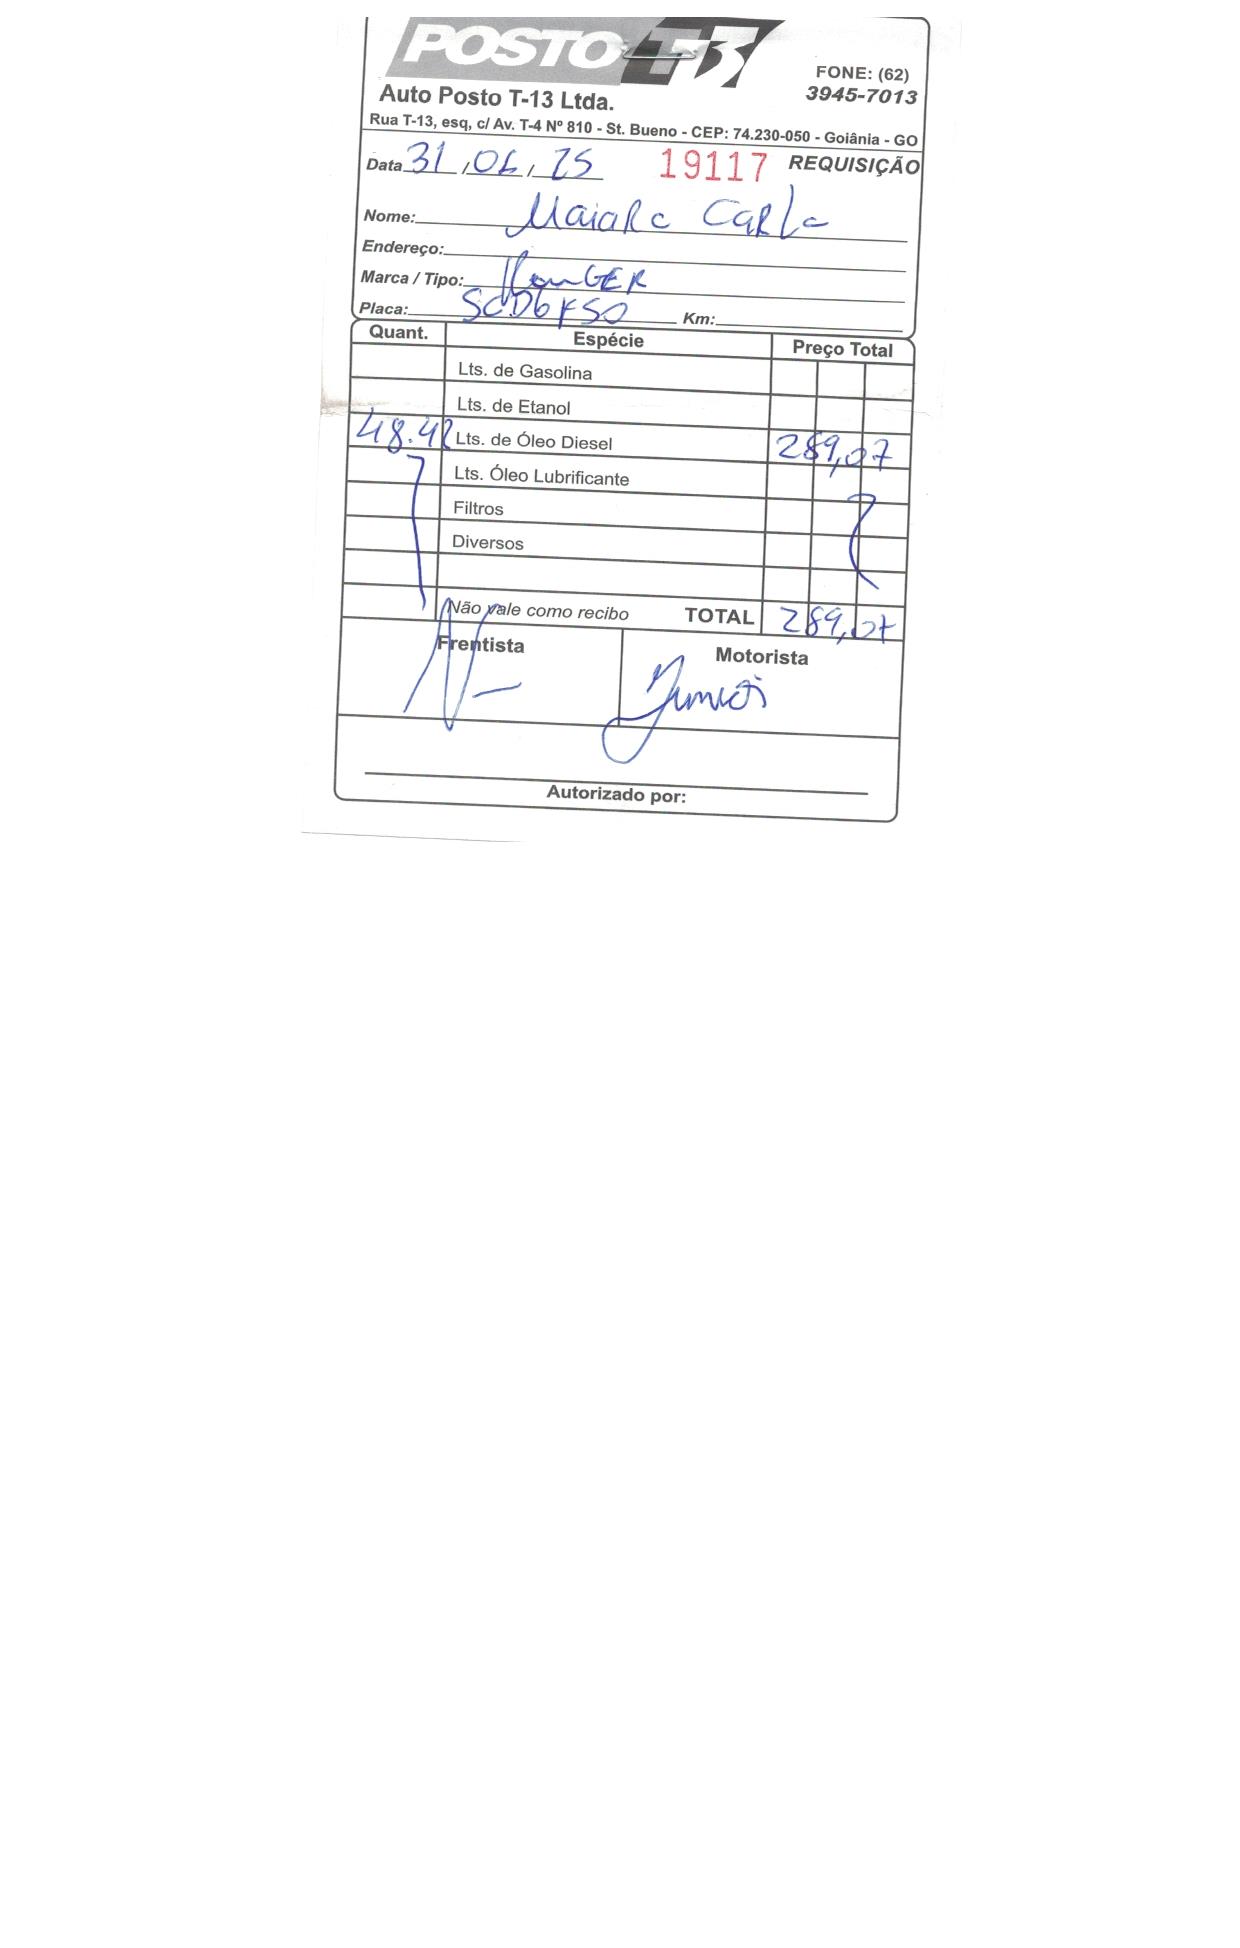 POSTO T-13
FONE: (62)
3945-7013
Auto Posto T-13 Ltda.
Rua T-13, esq, c/ Av. T-4 Nº 810 - St. Bueno - CEP: 74.230-050 - Goiânia - GO
Data 31 / 01 / 25 19117 REQUISIÇÃO
Nome: Maiara Carla
Endereço:
Marca / Tipo: RanGER
Placa: SCD6F50 Km:
Quant. Espécie Preço Total
Lts. de Gasolina
Lts. de Etanol
48.42 Lts. de Óleo Diesel 289,07
Lts. Óleo Lubrificante
Filtros
Diversos
Não vale como recibo TOTAL 289,07
Frentista Motorista
Junior
Autorizado por: